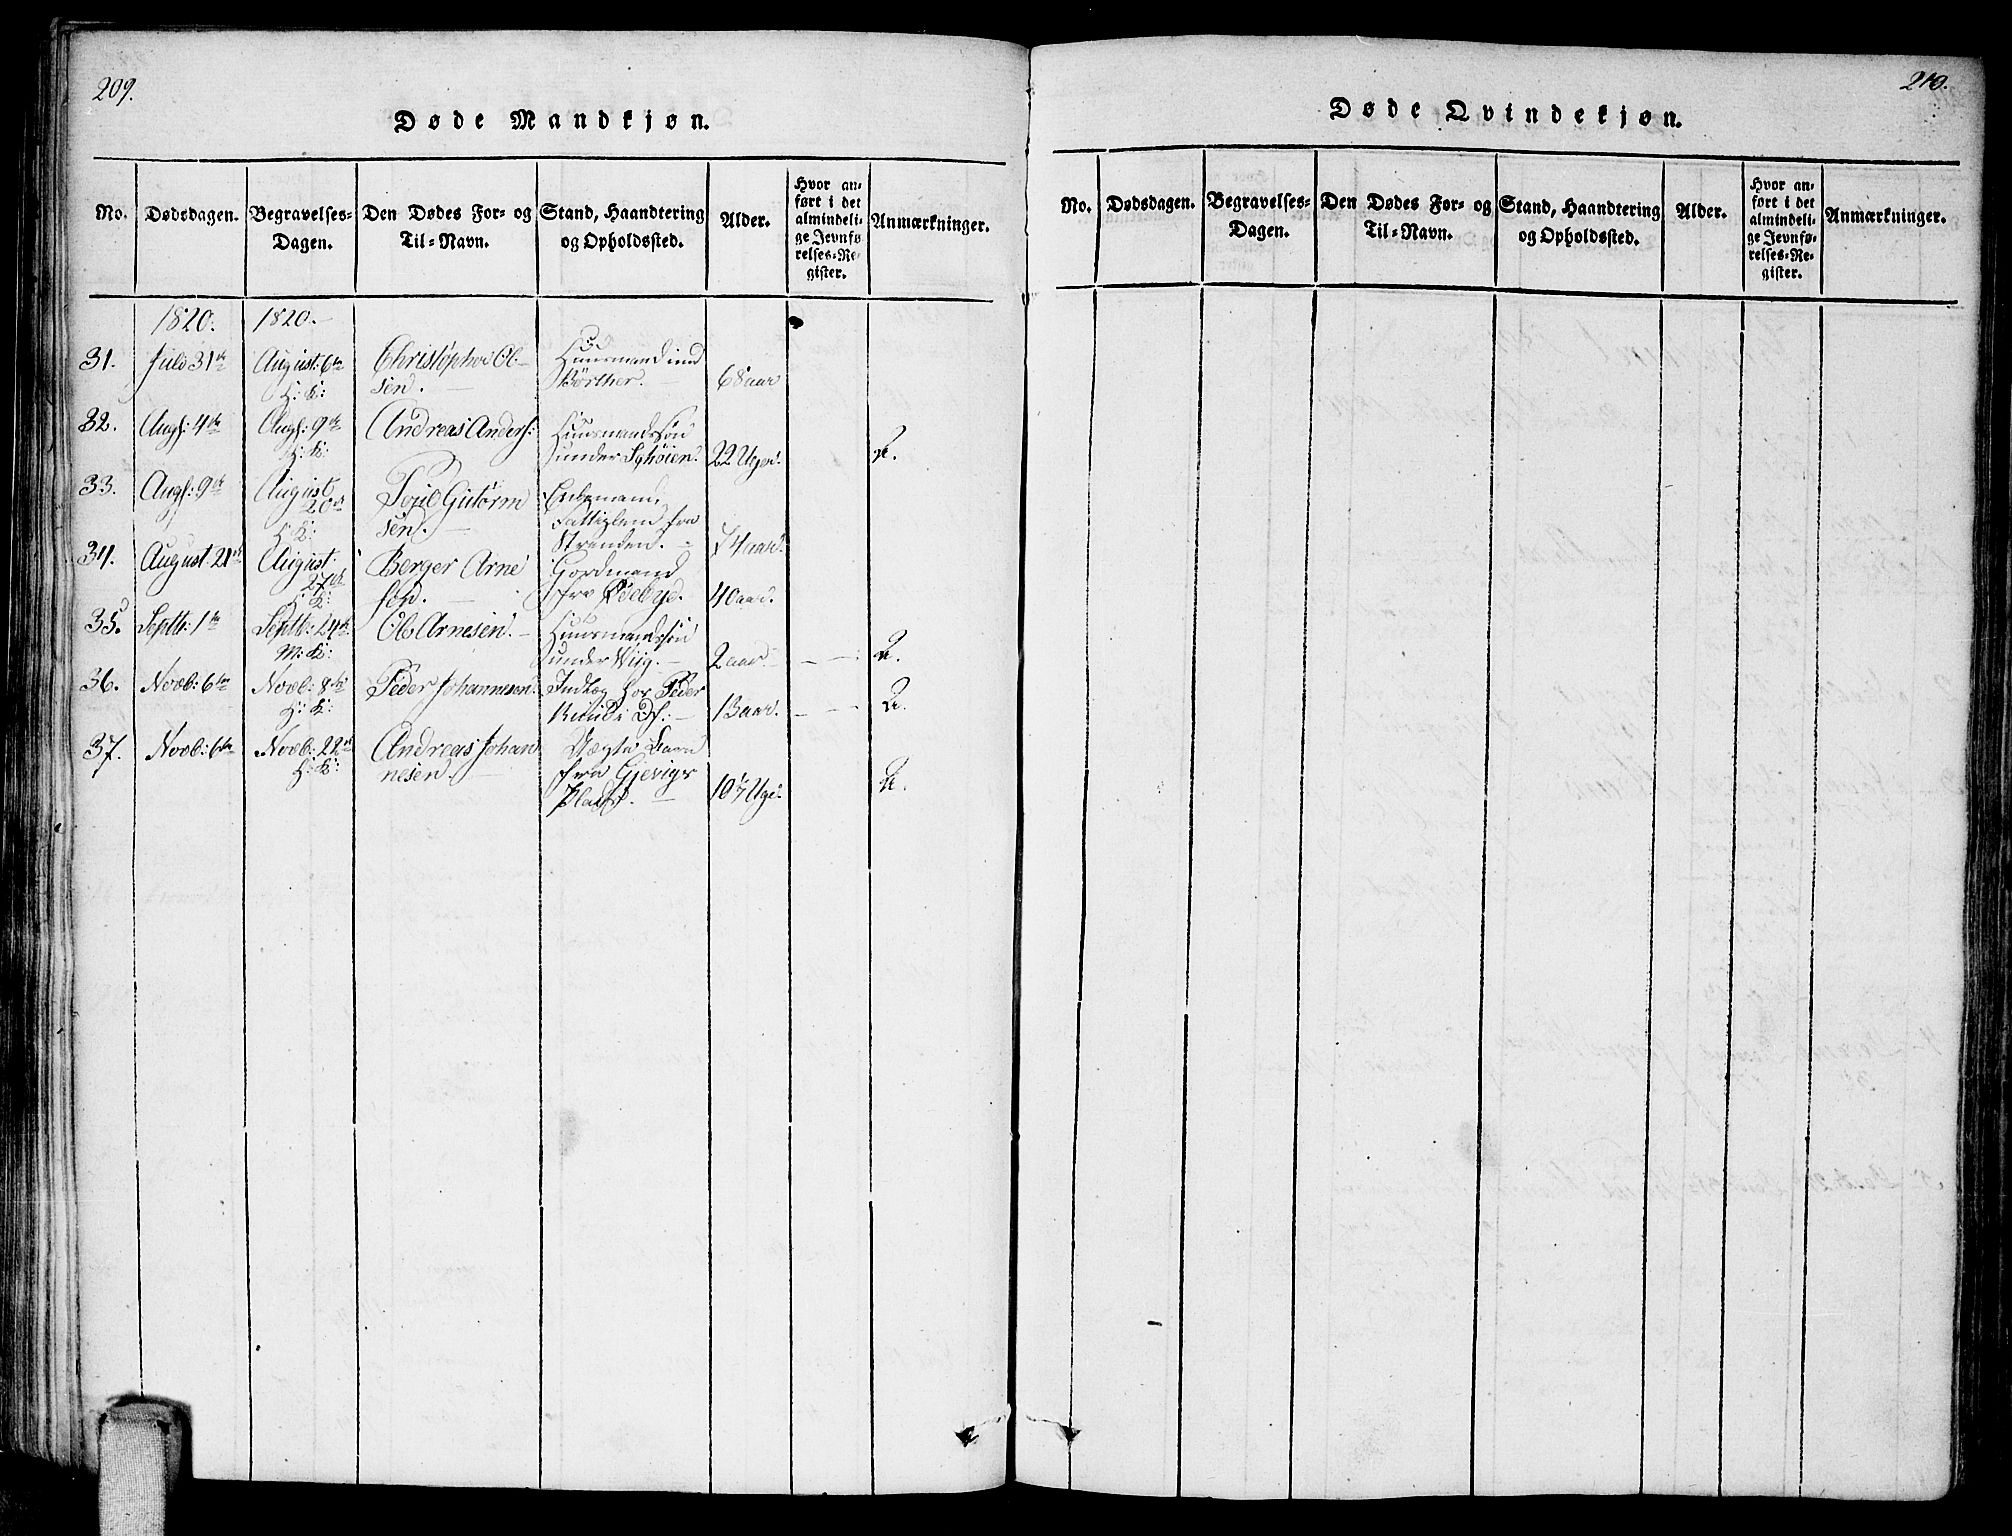 209.
Døde Mandkjøn.
No.
Dødsdagen.
Begravelses-
Dagen.
Den Dødes For- og
Til-Navn.
Stand, Haandtering
og Opholdssted.
Alder.
Hvor an-
ført i det
almindeli-
ge Jevnfø-
relses-Re-
gister.
Anmærkninger.
1820. 1820.
31. Juli 31te August: 6te Christopher Ol- Huusmand
H: K: sen. 68 aar
32. Augs: 4de Augs: 9de Andreas Anders: Huusmandssøn
H: K: under Schøien. 22 Uger.
33. Augs: 9de August Gutorm Enkemand,
20de sen. Fattiglem fra
H: K: Stranden. 74 aar.
34. August: 21de August Berger Arne Gordmand
27de søn. fra 40 aar.
H: K:
35. Septb: 1te Septb: 24de Ole Arnesen. Huusmandssøn
M: K: under Wiig. 2 aar.
36. Novb: 6te Novb: 8de Peder Johannesen. Indlæg hos Peder
H: K: 13 aar.
37. Novb: 6te Novb: 22de Andreas Johan- Uægte Barn
H: K: nesen. fra Gjevigs
Plads. 10 Uge.
210.
Døde Qvindekjøn.
No.
Dødsdagen.
Begravelses-
Dagen.
Den Dødes For- og
Til-Navn.
Stand, Haandtering
og Opholdssted.
Alder.
Hvor an-
ført i det
almindeli-
ge Jevnfø-
relses-Re-
gister.
Anmærkninger.